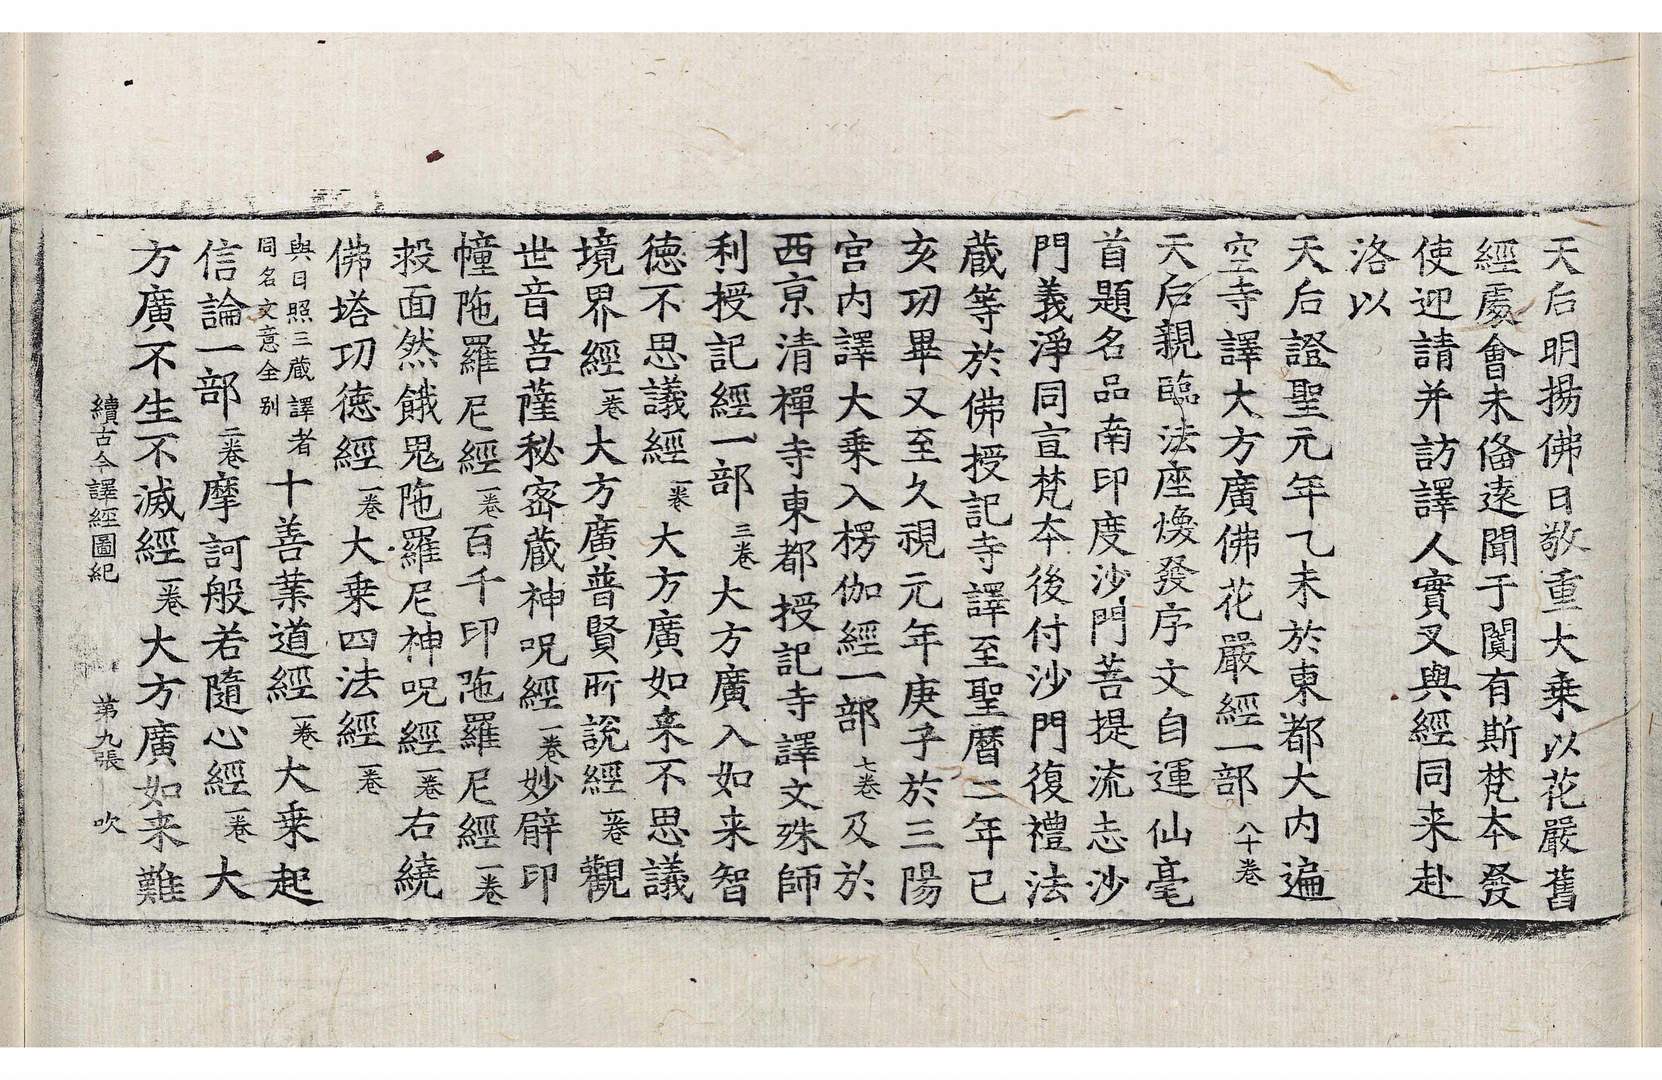 天后明揚佛日敬重大乗以花嚴舊
經處會未俻遠聞于闐有斯梵本發
使迎請并訪譯人實叉與經同来赴
洛以
天后證聖元年乙未於東都大内遍
空寺譯大方廣佛花嚴經一部八十卷
天后親臨法座煥發序文自運仙毫
首題名品南印度沙門菩提流志沙
門義淨同宣梵本後付沙門復禮法
蔵等於佛授記寺譯至聖曆二年已
亥功畢又至久視元年庚子於三陽
宮内譯大乗入楞伽經一部七卷及於
西京清禪寺東都授記寺譯文殊師
利授記經一部三卷大方廣入如来智
徳不思議經一卷大方廣如来不思議
境界經一卷大方廣普賢所說經一卷觀
世音菩薩秘宻蔵神呪經一卷妙臂印
幢陁羅尼經一卷百千印陁羅尼經一卷
救面然餓鬼陁羅尼神呪經一卷右繞
佛塔功徳經一卷大乗四法經一卷
與日照三蔵譯者同名文意全別十善業道經一卷大乗起
信論一部二卷摩訶般若隨心經一卷大
方廣不生不滅經一卷大方廣如来難
續古今譯經圖紀 第九張 吹